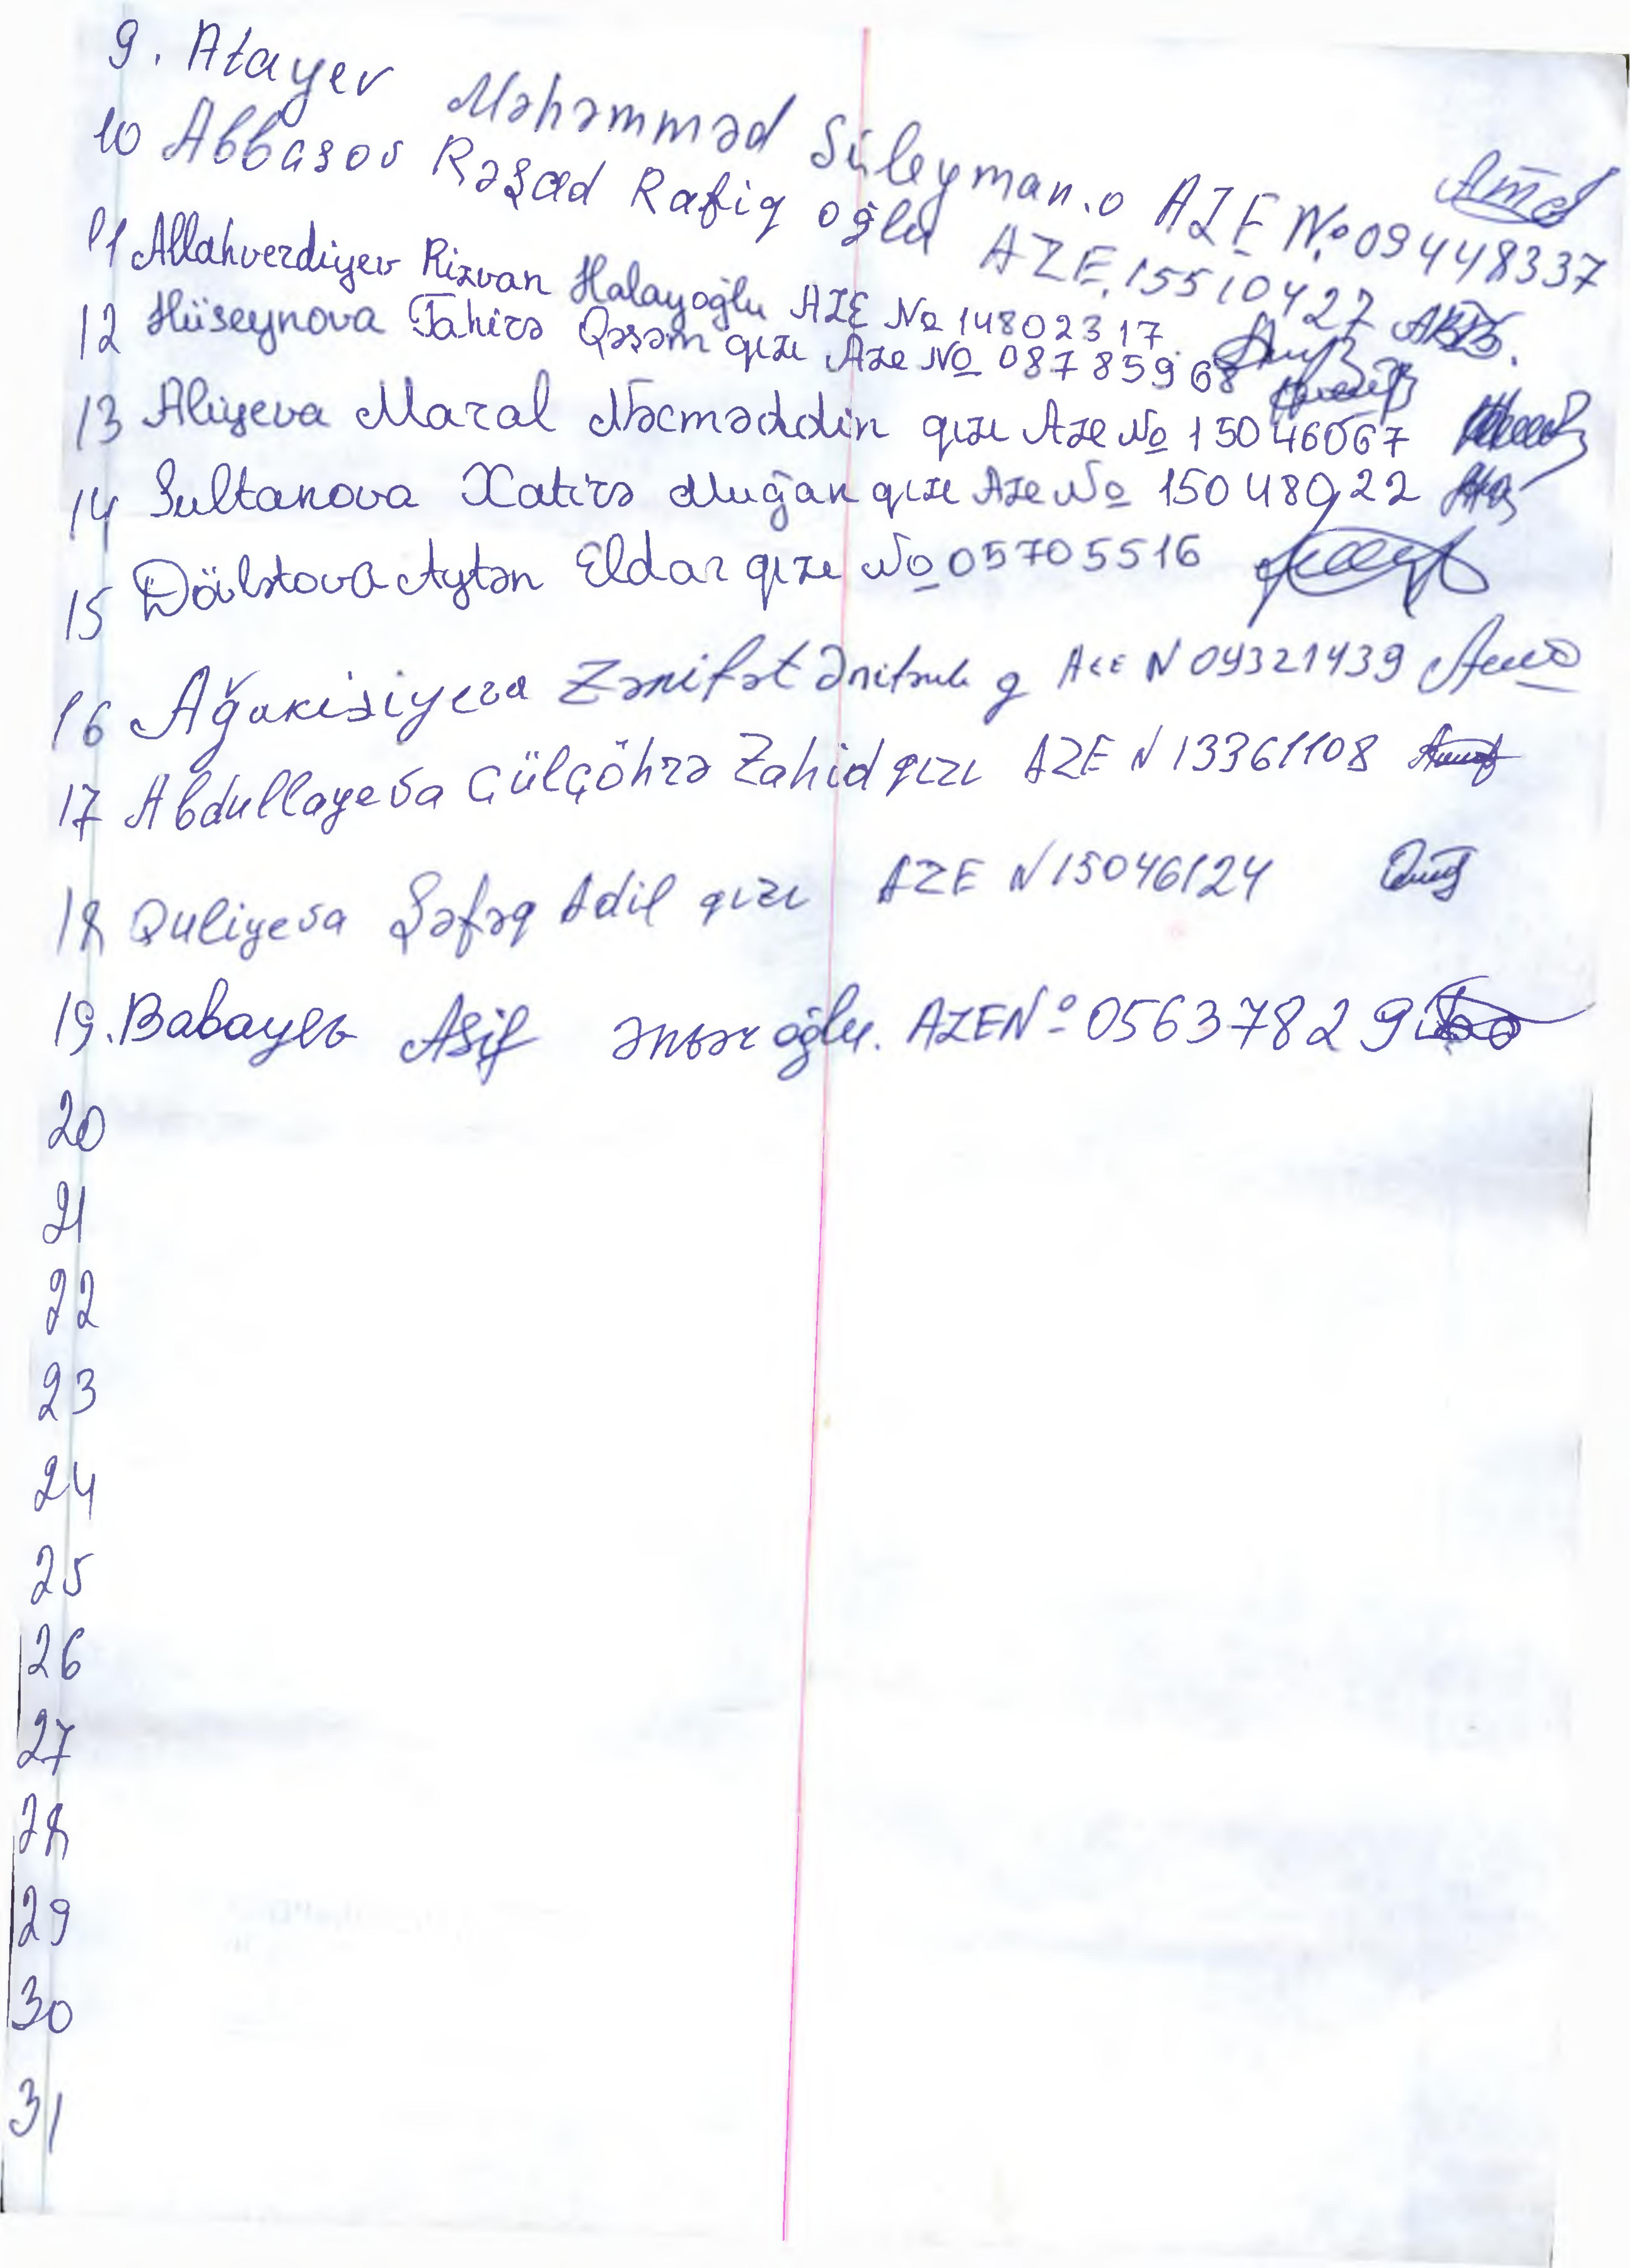 9. Atayev Məhəmməd Süleyman.o AZE №09448337
10 Abbasov Rəşad Rafiq oğlu AZE.15510427
11 Allahverdiyev Rizvan Halayoğlu AZE № 14802317
12 Hüseynova Tahirə Qəşəm qızı Aze № 08785968
13 Aliyeva Maral Nəcməddin qızı Aze № 15046067
14 Sultanova Xatirə Muğan qızı Aze № 15048922
15 Dövlətova Aytən Eldar qızı № 05705516
16 Ağakisiyeva Zərifət q AZE N 09321439
17 Abdullayeva Gülçöhrə Zahid qızı AZE N 13361108
18 Quliyeva Şəfəq Adil qızı AZE N 15046124
19. Babayev Asif ənvər oğlu. AZE № 05637829
20
21
22
23
24
25
26
27
28
29
30
31